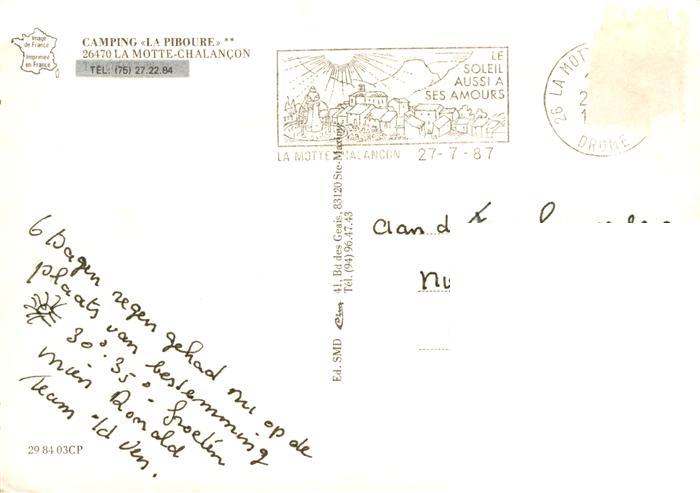 Image
de France
Imprimée
en France
CAMPING «LA PIBOURE» **
26470 LA MOTTE-CHALANÇON
TÉL: (75) 27.22.84
LE
SOLEIL
AUSSI A
SES AMOURS
LA MOTTE CHALANCON 27-7-87
26 LA MOTT
DROME
Ed. SMD 41, Bd des Geais, 83120 Ste-Maxime
Tél. (94) 96.47.43
6 Dagen regen gehad nu op de
plaats van bestemming
30°. 35° - Groeten
Ronald
Team
29 84 03CP